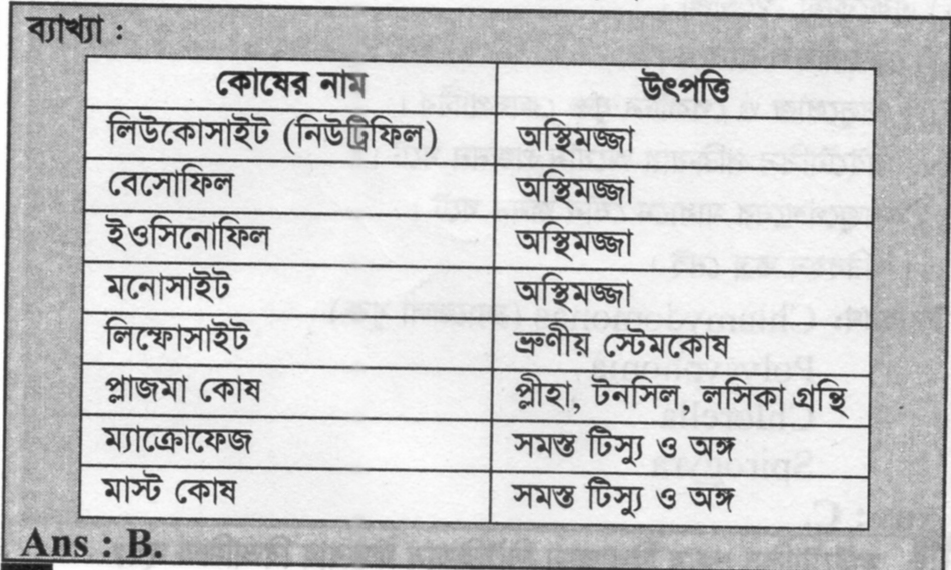 ব্যাখ্যা :
কোষের নাম উৎপত্তি
লিউকোসাইট (নিউট্রিফিল) অস্থিমজ্জা
বেসোফিল অস্থিমজ্জা
ইওসিনোফিল অস্থিমজ্জা
মনোসাইট অস্থিমজ্জা
লিম্ফোসাইট ভ্রুণীয় স্টেমকোষ
প্লাজমা কোষ প্লীহা, টনসিল, লসিকা গ্রন্থি
ম্যাক্রোফেজ সমস্ত টিস্যু ও অঙ্গ
মাস্ট কোষ সমস্ত টিস্যু ও অঙ্গ
Ans : B.